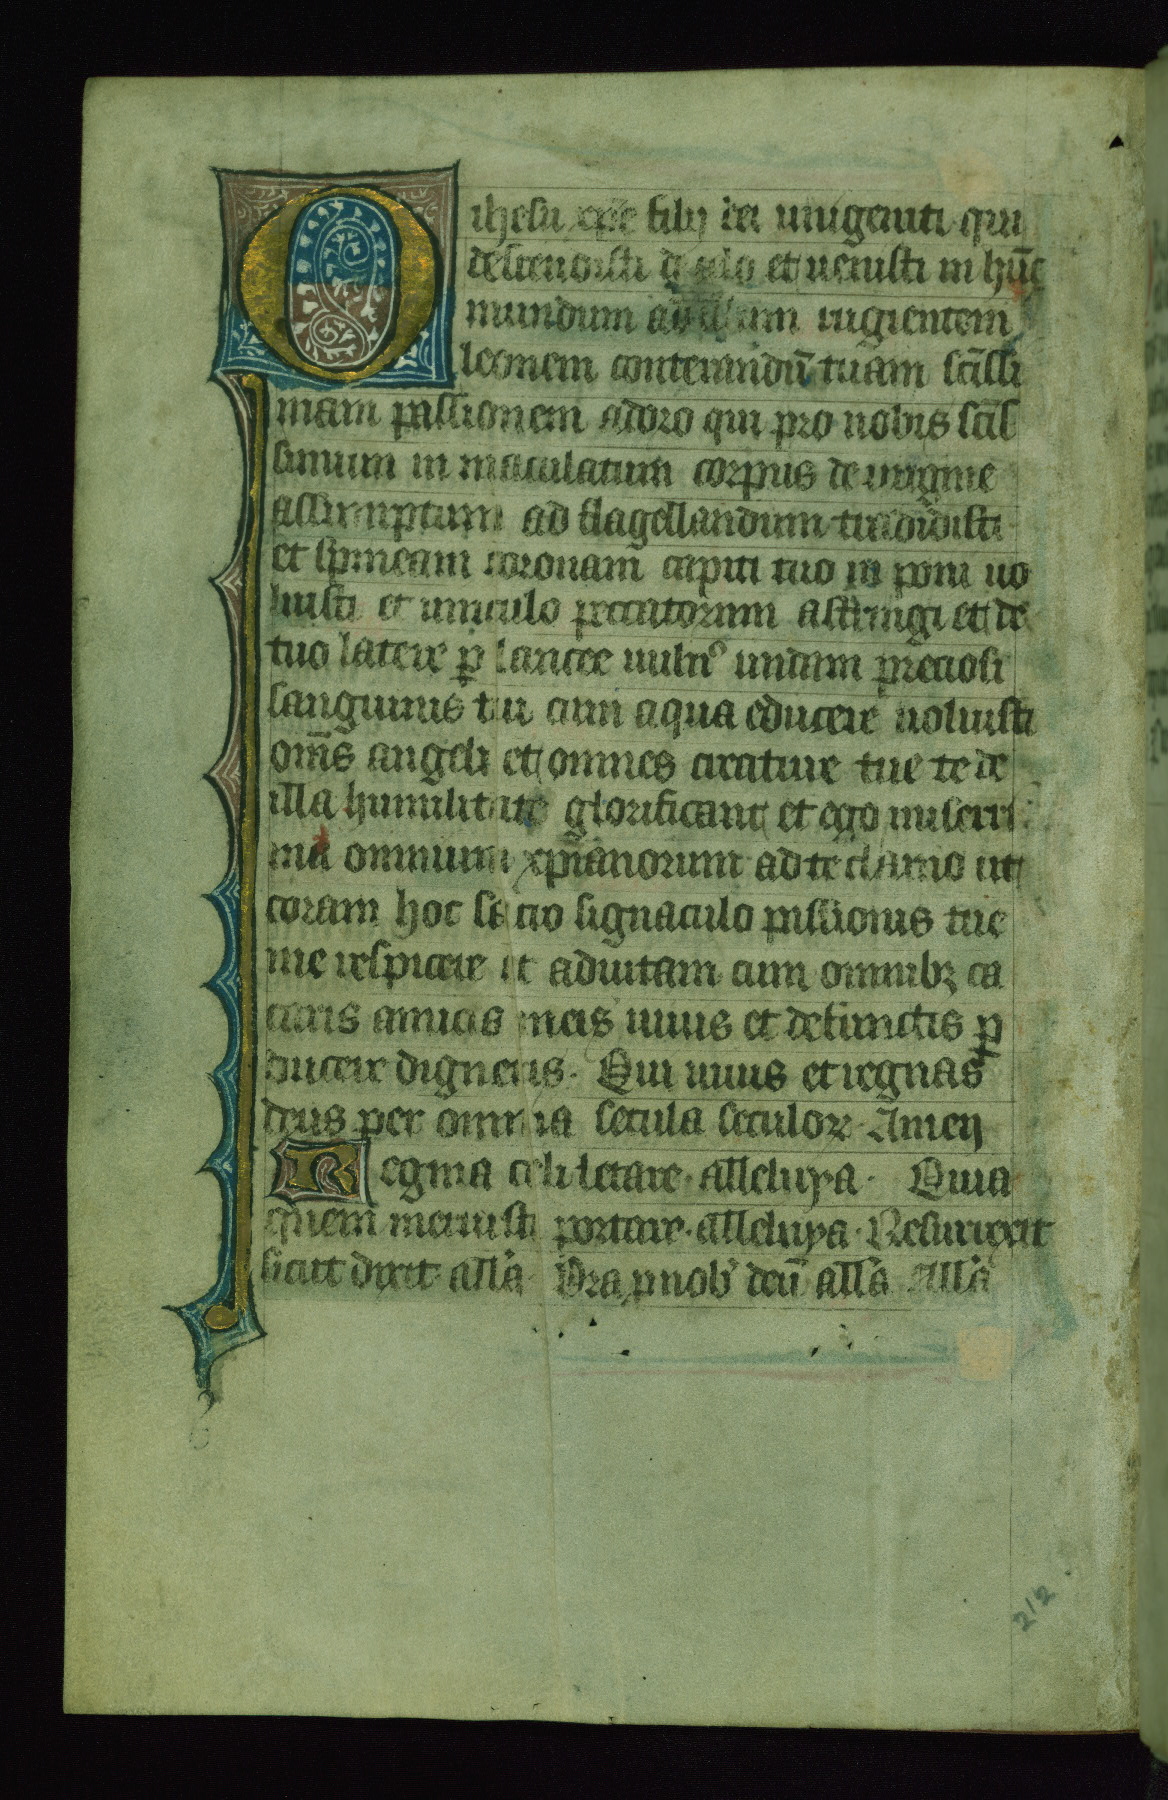 O ihesu xpe filij dei unigeniti qui
descendisti de celo et uenisti in hūc
mundum ad rugientem
leonem conterendū tuam sc̄issi
mam passionem adoro qui pro nobis sc̄is
simum in maculatum corpus de uirgine
assumptum ad flagellandum tradidisti
et spineam coronam capiti tuo in poni uo
luisti et uinculo peccatorum astringi et de
tuo latere p lancee uuln⁹ undam preciosi
sanguinis tui cum aqua educere uoluisti
om̄s angeli et omnes creature tue te de
illa humilitate glorificant et ego miserri
ma omnium xp̄ianorum ad te clamo ut
coram hoc sacro signaculo passionis tue
me respicere et ad uitam cum omnibꝫ ca
ceris amicis meis uiuis et defunctis p
ducere digneris. Qui uiuis et regnas
deus per omnia secula seculoꝝ. Amen
Regina celi letare. alleluya. Quia
quem meruisti portare. alleluya. Resurrexit
sicut dixit. all'a. Ora p nob' deū all'a all'a
212